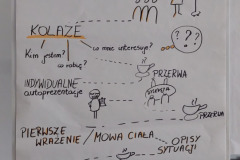 KOLAŻE
???
Kim jestem?
co robię?
co mnie interesuje?
PRZERWA
INDYWIDUALNE
autoprezentacje
PRZERWA
PIERWSZE
WRAŻENIE / MOWA CIAŁA
OPISY
SYTUACJI